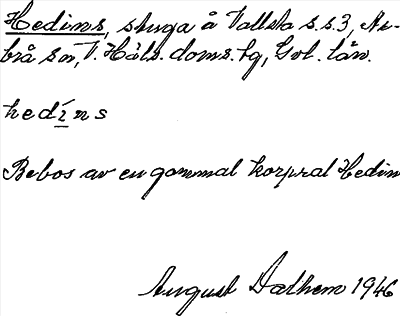 Hedins, stuga å Vallsta s.s.3, Ar-
brå sn, V. Häls. doms. hg, Gvl. län.
hedí̱ns
Bebos av en gammal korpral Hedin
August Dalhem 1946